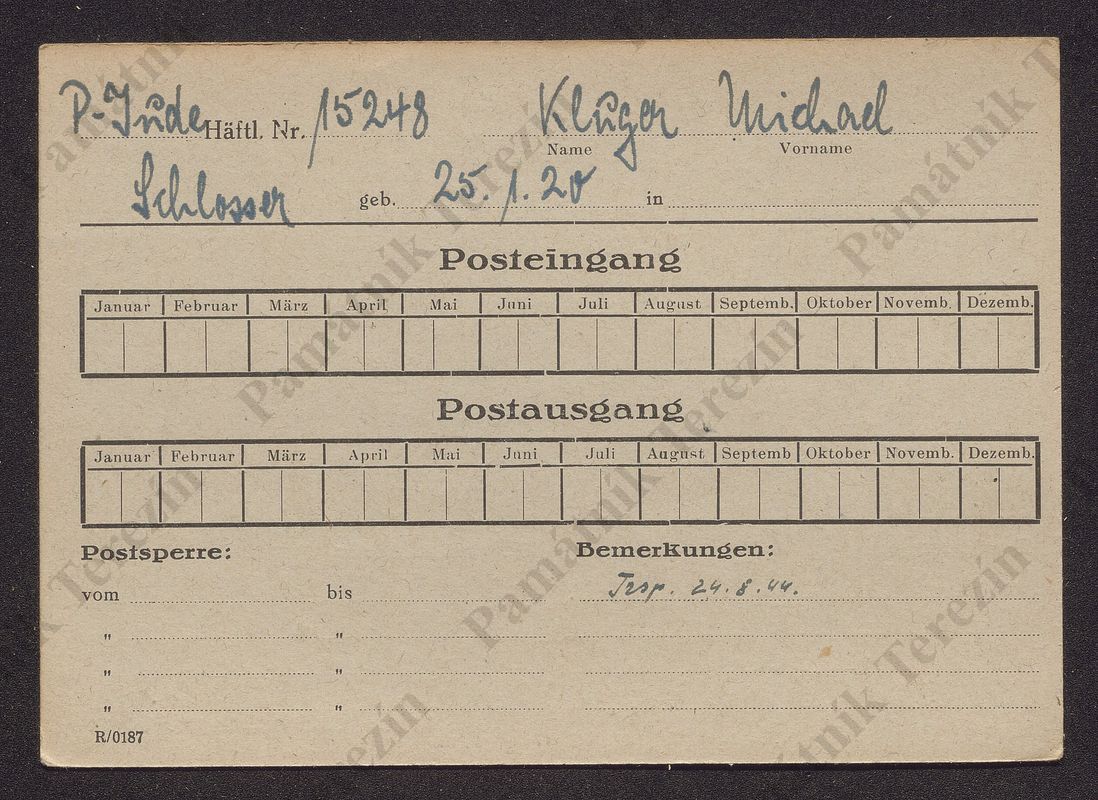 P-Jude Häftl. Nr. 15248 Kluger Michael
Name Vorname
Schlosser geb. 25. 1. 20 in
Posteingang
Januar Februar März April Mai Juni Juli August Septemb. Oktober Novemb. Dezemb.
Postausgang
Januar Februar März April Mai Juni Juli August Septemb Oktober Novemb. Dezemb.
Postsperre: Bemerkungen:
vom bis Trsp. 24.8.44.
" "
" "
" "
R/0187
Památník Terezín